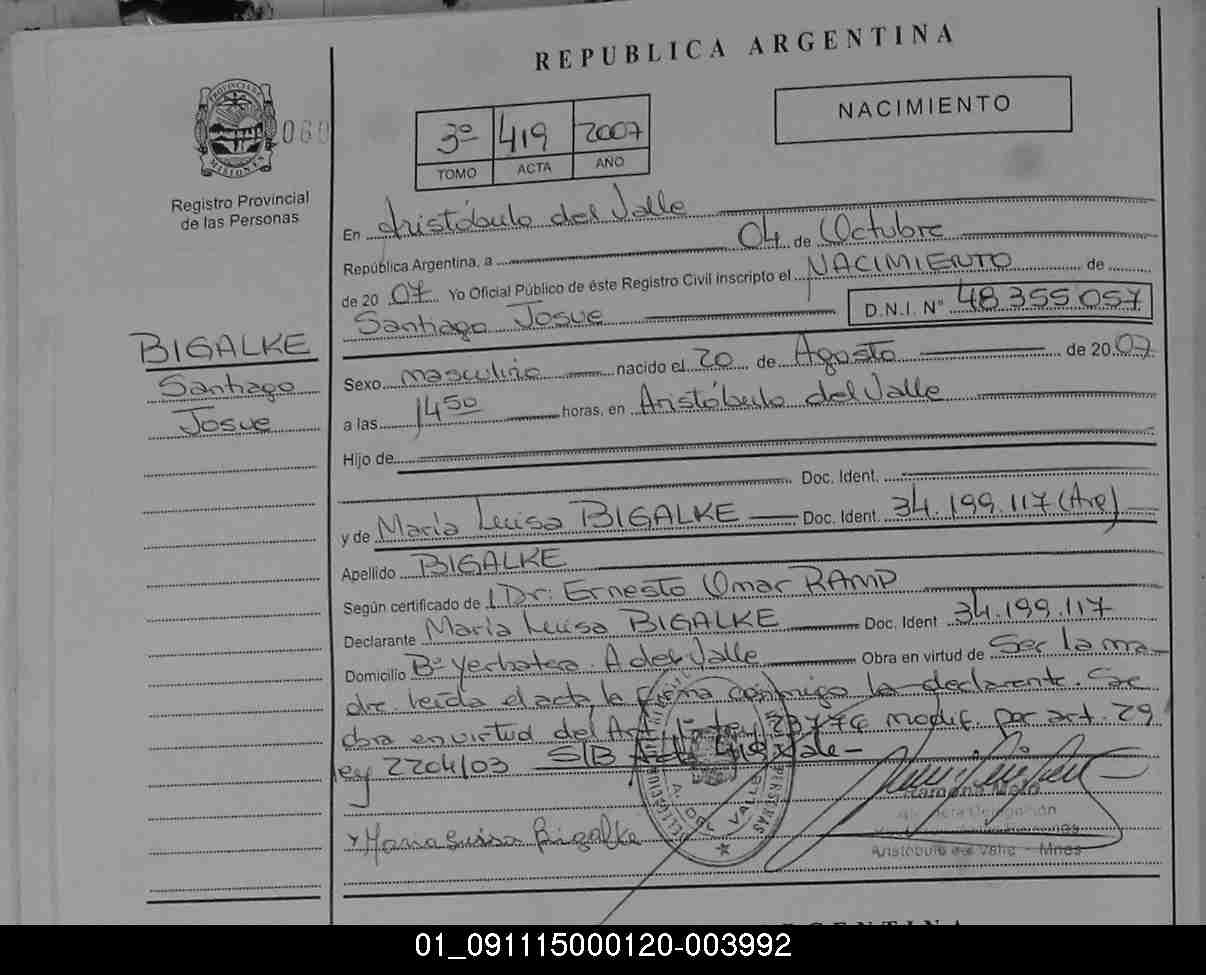 REPUBLICA ARGENTINA
PROVINCIA DE MISIONES
060
Registro Provincial
de las Personas
3º 419 2007
TOMO ACTA AÑO
NACIMIENTO
En Aristóbulo del Valle
República Argentina, a 04 de Octubre
de 2007 Yo Oficial Público de éste Registro Civil inscripto el NACIMIENTO de
Santiago Josue D.N.I. Nº 48.355.057
BIGALKE
Santiago
Josue
Sexo masculino nacido el 20 de Agosto de 2007
a las 1450 horas, en Aristóbulo del Valle
Hijo de
Doc. Ident.
y de María Luisa BIGALKE Doc. Ident. 34.199.117 (Arg)
Apellido BIGALKE
Según certificado de Dr: Ernesto Omar RAMP
Declarante María Luisa BIGALKE Doc. Ident 34.199.117
Domicilio Bº Yerbatero. A del Valle Obra en virtud de Ser la ma-
dre. leída el acta, la firma conmigo la declarante. Se
obra en virtud del Art. modif. por art. 29
ley 2204/03 S/B 419 Vale-
A. DEL VALLE
Maria Luisa Bigalke
Aristóbulo del Valle - Mnes
ARGENTINA
01_091115000120-003992